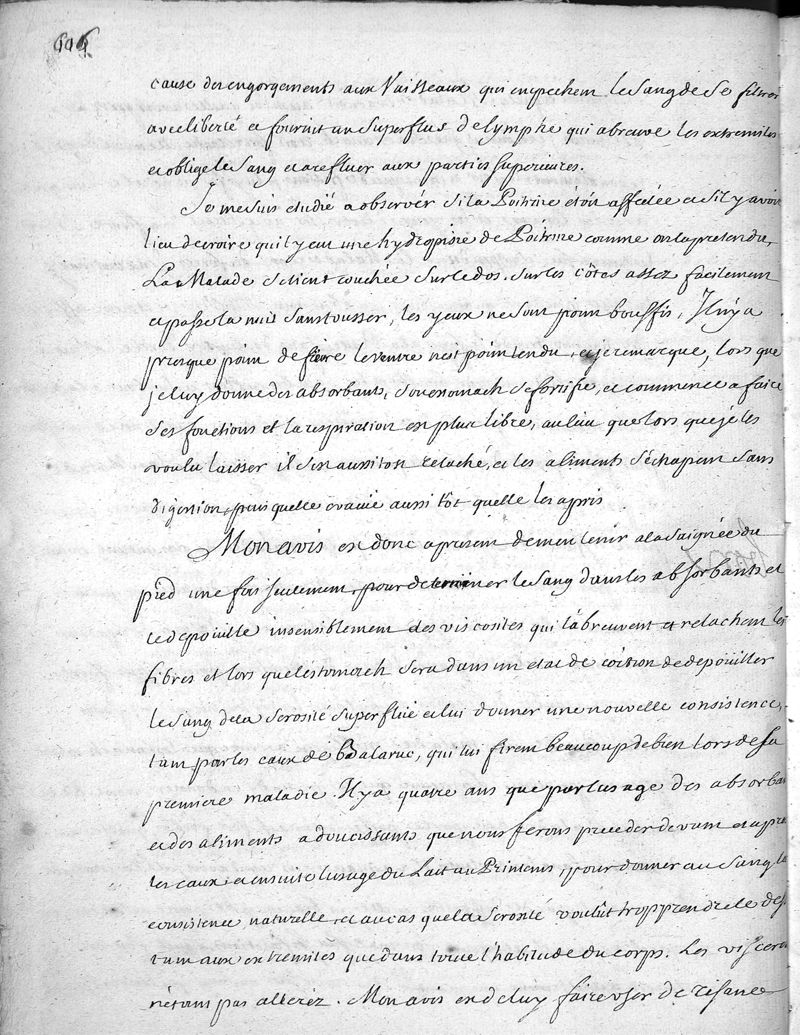 cause des engorgements aux Vaisseaux qui enpechem le sang de se filtrer
avec liberté et fournit un superflus de lymphe qui abreuve les extremites
et oblige le sang a refluer aux parties superieures.
Je me suis etudié a observér si la Poitrine étoit affectée et s'il y avoit
lieu de croire qu'il y eut une hydropisie de Poitrine comme on la pretendu,
La Malade se tient couchée sur le dos. sur les côtes assez facilement
et passe la nuit sans tousser, les yeux ne sont point bouffis, Il n'y a
presque point de fievre le ventre n'est point tendu, et je remarque, lors que
je luy donne des absorbants, son estomach se fortifie, et commence a faire
ses fonctions et la respiration est plus libre, au lieu que lors que je les
voulu laisser il s'en aussitost relaché, et les aliments s'échapent sans
digestion, puis quelle evacue aussi tôt quelle les a pris
Mon avis est donc a present de m'en tenir a la saignée du
pied une fois seulement, pour determiner le sang dans les absorbants et
le depouille insensiblement des viscosites qui l'abreuvent et relachent les
fibres et lors que l'estomach sera dans un etat de coction de depouiller
le sang de la serosité superflüe et lui donner une nouvelle consistence,
tant par les eaux de Balaruc, qui lui firent beaucoup de bien lors de sa
premiere maladie. Il y a quatre ans que par l'usage des absorban
et des aliments adoucissants que nous ferons preceder devant et apre
les eaux et ensuite l'usage du Lait au Printems, pour donner au sang la
consistence naturelle, et au cas que la serosité voulût trop prendre le des
tant aux extremites que dans toute l'habitude du corps. Les viscera
n'étant pas alterez. Mon avis est de luy faire user de tisanne